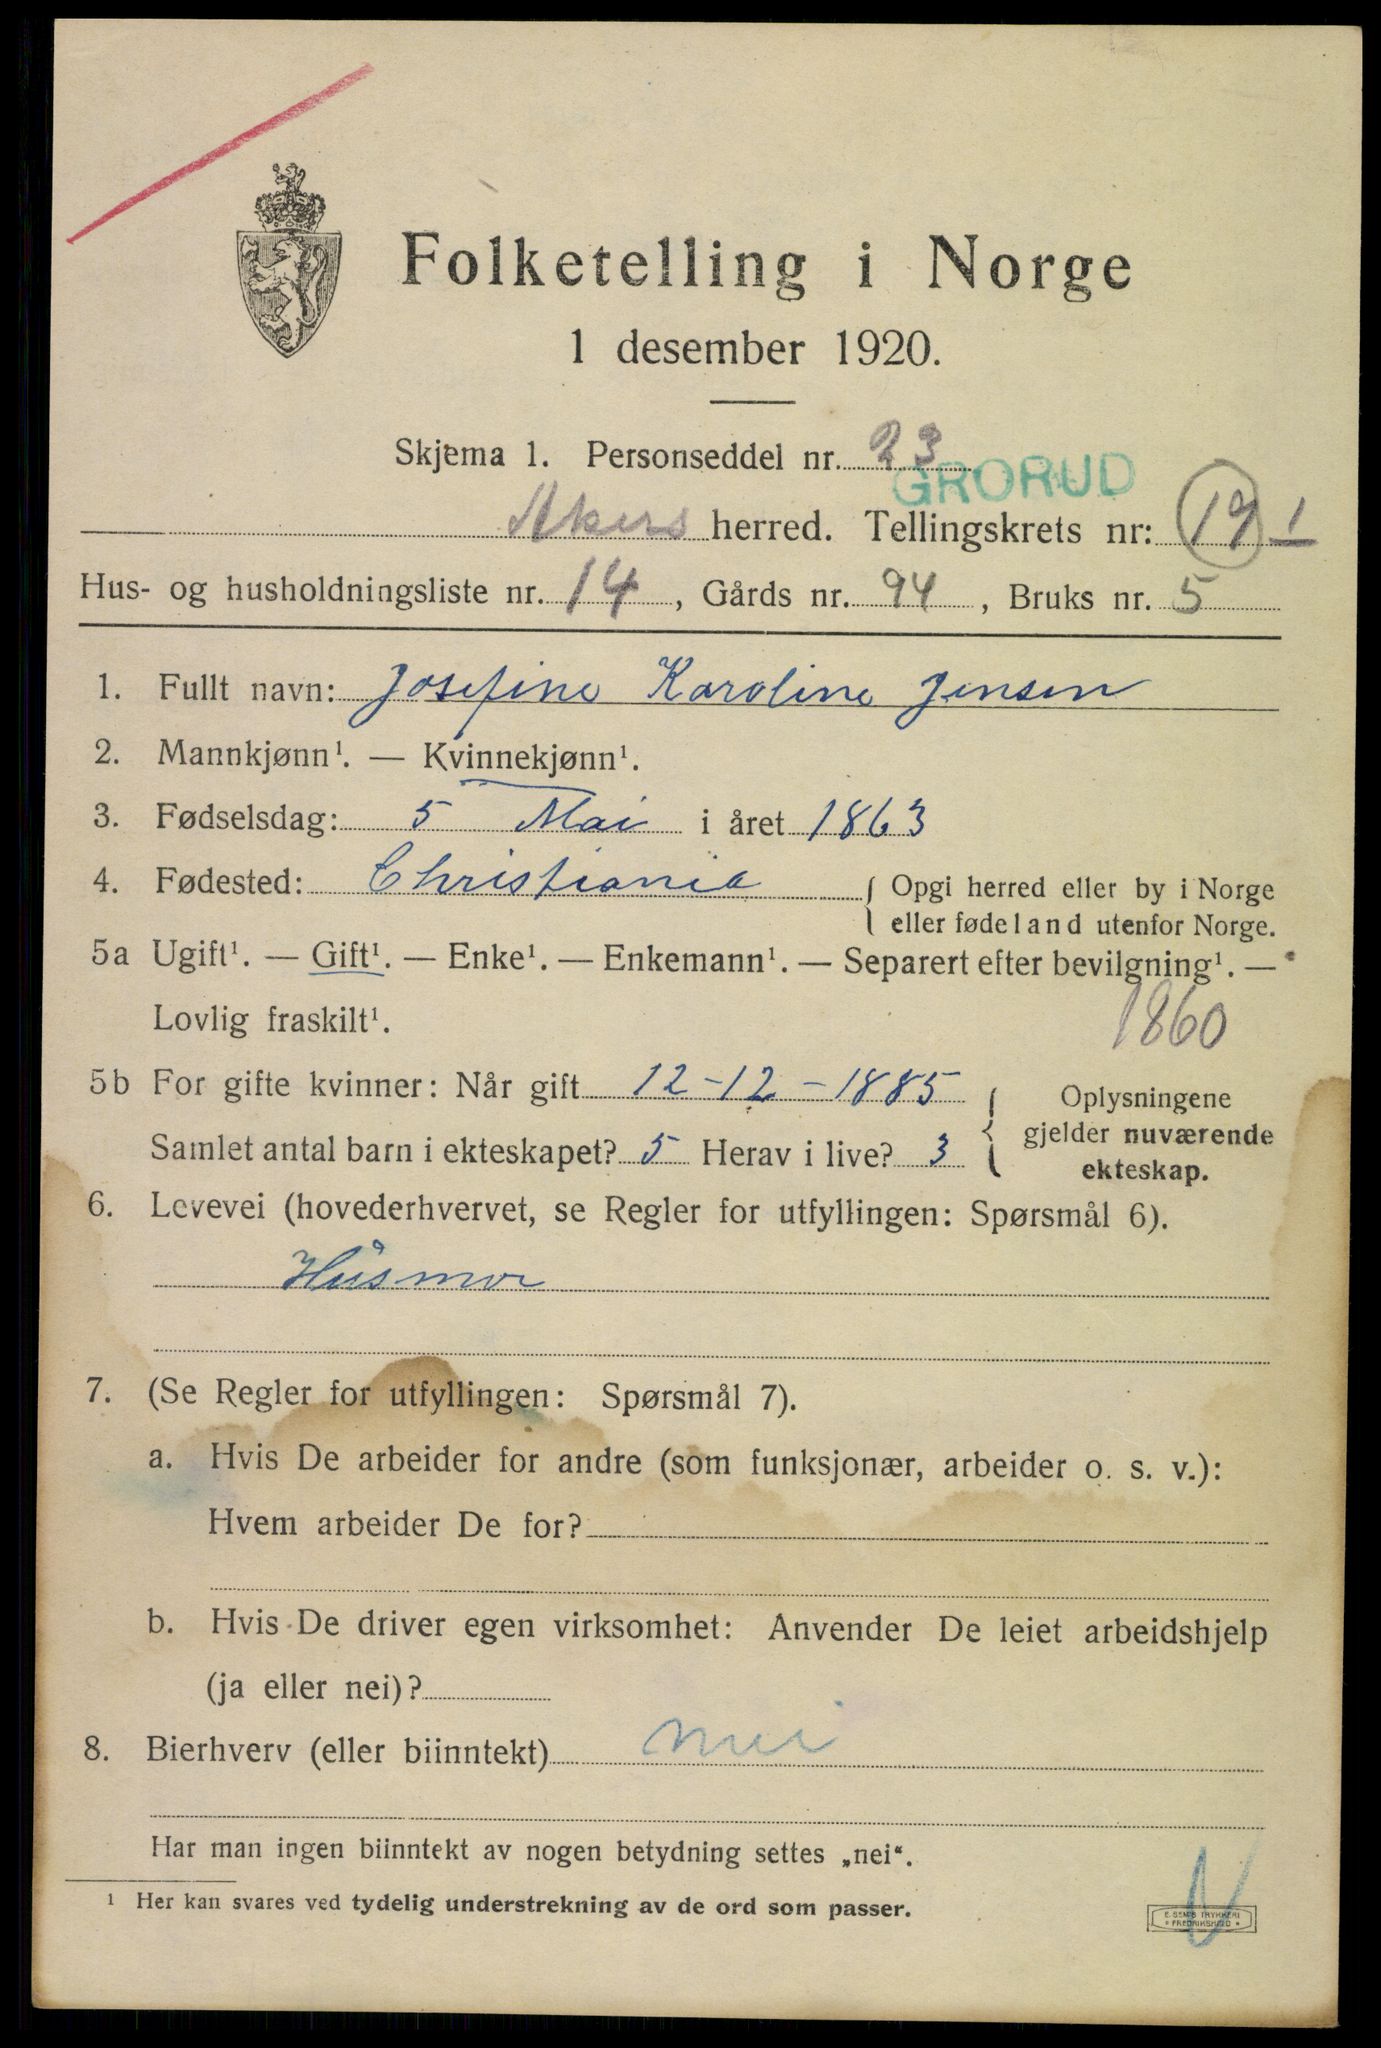 Folketelling i Norge
1 desember 1920.
Skjema 1. Personseddel nr. 23
GRORUD
Akers herred. Tellingskrets nr: 19 1
Hus- og husholdningsliste nr. 14, Gårds nr. 94, Bruks nr. 5
1. Fullt navn: Josefine Karoline Jensen
2. Mannkjønn¹. — Kvinnekjønn¹.
3. Fødselsdag: 5 Mai i året 1863
4. Fødested: Christiania { Opgi herred eller by i Norge
eller fødeland utenfor Norge.
5a Ugift¹. — Gift¹. — Enke¹. — Enkemann¹. — Separert efter bevilgning¹. —
Lovlig fraskilt¹.
1860
5b For gifte kvinner: Når gift 12-12-1885
Samlet antal barn i ekteskapet? 5 Herav i live? 3
{ Oplysningene
gjelder nuværende
ekteskap.
6. Levevei (hovederhvervet, se Regler for utfyllingen: Spørsmål 6).
Husmor
7. (Se Regler for utfyllingen: Spørsmål 7).
a. Hvis De arbeider for andre (som funksjonær, arbeider o. s. v.):
Hvem arbeider De for?
b. Hvis De driver egen virksomhet: Anvender De leiet arbeidshjelp
(ja eller nei)?
8. Bierhverv (eller biinntekt) nei
Har man ingen biinntekt av nogen betydning settes „nei“.
¹ Her kan svares ved tydelig understrekning av de ord som passer.
E. SEM'S TRYKKERI
FREDRIKSHALD